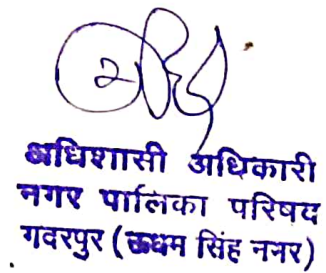 अधिशासी अधिकारी
नगर पालिका परिषद
गदरपुर (ऊधम सिंह नगर)